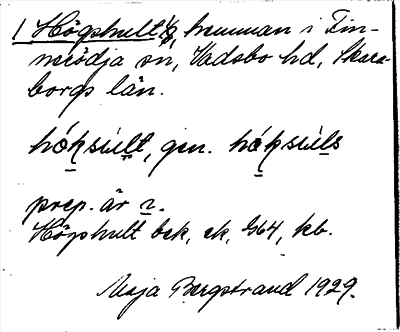 1 Högshult 1/8, hemman i Fin-
nerödja sn, Vadsbo hd, Skara-
borgs län.
hóksùlt, gen. hóksùls
prep. är 2.
Högshult bek, ek, G64, kb.
Maja Bergstrand 1929.